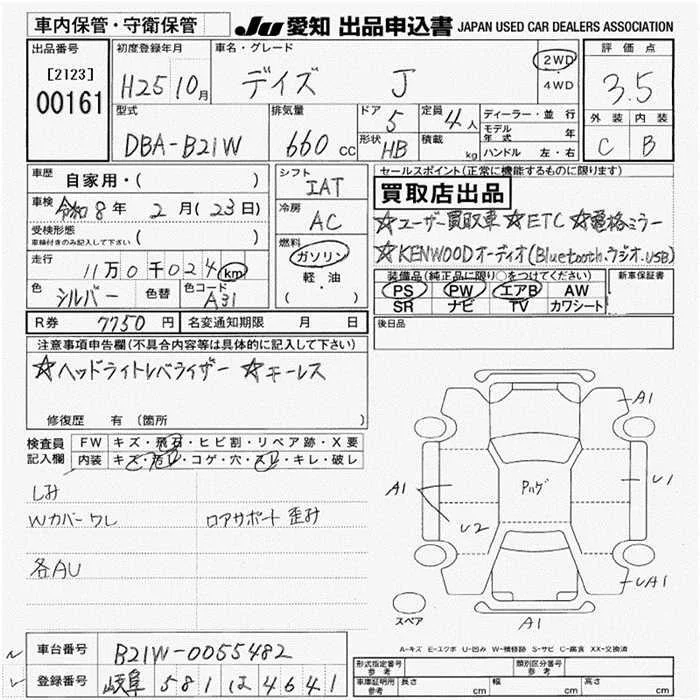 車内保管・守衛保管 JU 愛知 出品申込書 JAPAN USED CAR DEALERS ASSOCIATION
出品番号 初度登録年月 車名・グレード 評価点
[2123] 00161 H25 10月 デイズ J 2WD 4WD 3.5
型式 排気量 ドア 定員 ディーラー・並行 外装 内装
DBA-B21W 660cc 5 4人 モデル年式 年 C B
形状 HB 積載 kg ハンドル 左・右
車歴 自家用・( ) シフト IAT セールスポイント(正常に機能するものに限ります)
車検 令和8年 2月(23日) 冷房 AC 買取店出品
受検形態 ( ) ☆ユーザー買取車 ☆ETC ☆電格ミラー
車検付きのみ記入して下さい 燃料 ガソリン ☆KENWOODオーディオ(Bluetooth.ラジオ.USB)
走行 11万0千024km 軽油 ( ) 装備品(純正品に限り○をつけてください) 新車保証書
色 シルバー 色替 色コード A31 PS PW エアB AW
SR ナビ TV カワシート
R券 7750円 名変通知期限 月 日 後日品
注意事項申告欄(不具合内容等は具体的に記入して下さい)
☆ヘッドライトレベライザー ☆キーレス
修復歴 有 (箇所 )
検査員記入欄 FW キズ・飛石・ヒビ割・リペア跡・X要
内装 キズ・汚レ・コゲ・穴・スレ・キレ・破レ
シミ
Wカバーワレ ロアサポート歪み
各AU
A1
A1 Pハゲ U1
U2
UA1
スペア A1
A-キズ E-エクボ U-凹み W-補修跡 S-サビ C-腐食 XX-交換済
車台番号 B21W-0055482
登録番号 岐阜 581 は 4641
形式指定番号 参考 類別区分番号 参考
車庫証明用 参考 長さ cm 幅 cm 高さ cm